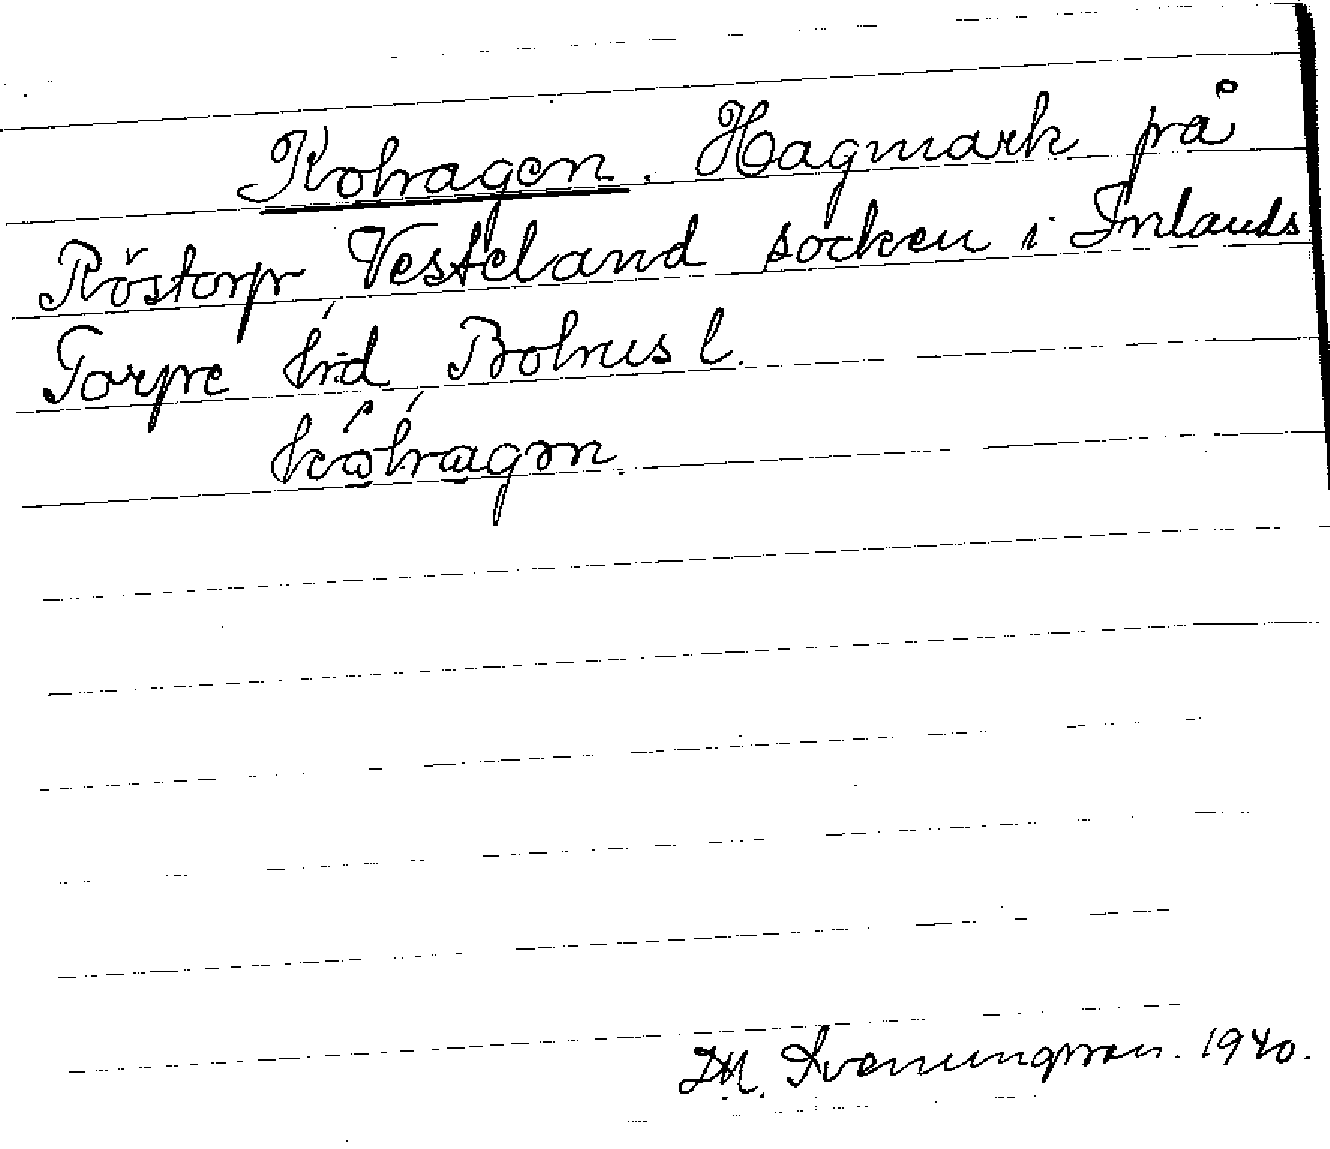 Kohagen. Hagmark på
Röstorp Vesteland socken i Inlands
Torpe hd Bohus l.
kohagen
D.M. Svenungsson. 1940.